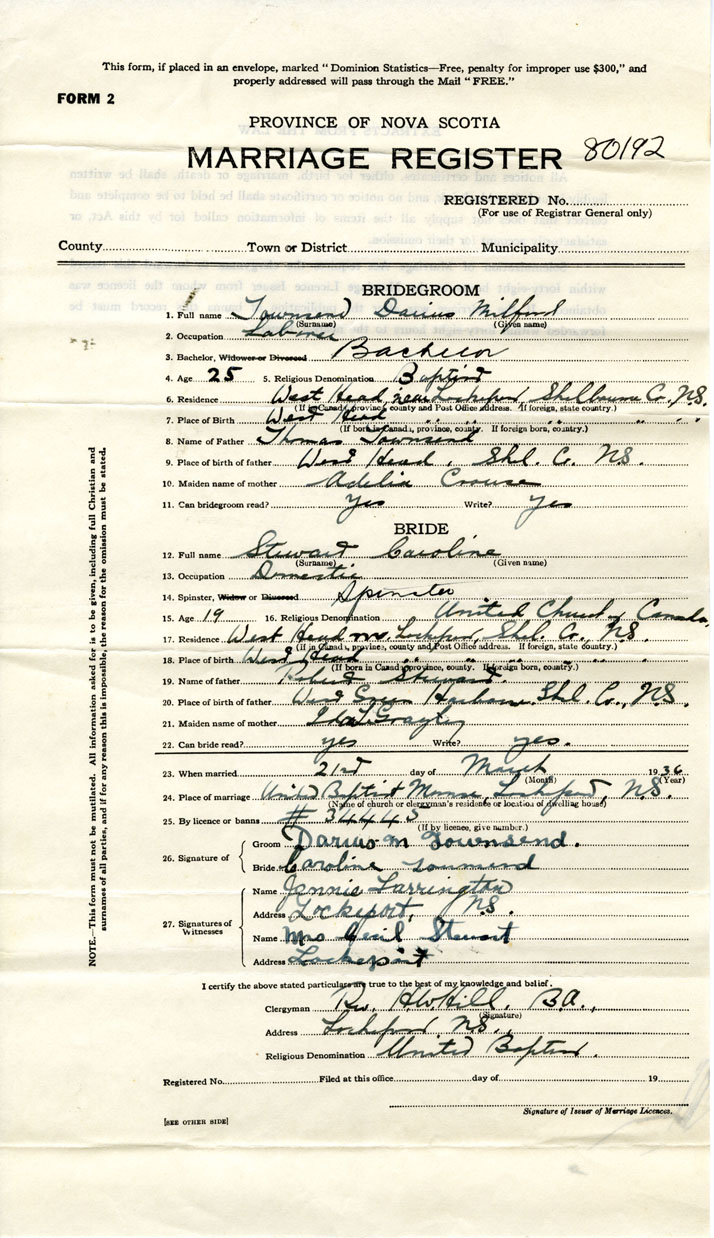 This form, if placed in an envelope, marked "Dominion Statistics—Free, penalty for improper use $300," and
properly addressed will pass through the Mail "FREE."
FORM 2
PROVINCE OF NOVA SCOTIA
MARRIAGE REGISTER 80192
REGISTERED No.
(For use of Registrar General only)
County Town or District Municipality
BRIDEGROOM
1. Full name Townsend Darius Milford
(Surname) (Given name)
2. Occupation Laborer
3. Bachelor, Widower or Divorced Bachelor
4. Age 25 5. Religious Denomination Baptist
6. Residence West Head, near Lockeport, Shelburne Co., N.S.
(If in Canada, province, county and Post Office address. If foreign, state country.)
7. Place of Birth West Head " " " " "
(If born in Canada, province, county. If foreign born, country.)
8. Name of Father Thomas Townsend
9. Place of birth of father West Head, Shel. Co. N.S.
10. Maiden name of mother Adelia Crouse
11. Can bridegroom read? yes Write? yes
BRIDE
12. Full name Stewart Caroline
(Surname) (Given name)
13. Occupation Domestic
14. Spinster, Widow or Divorced Spinster
15. Age 19 16. Religious Denomination United Church Canada,
17. Residence West Head nr. Lockeport, Shel. Co., N.S.
(If in Canada, province, county and Post Office address. If foreign, state country.)
18. Place of birth West Head " " " " "
(If born in Canada, province, county. If foreign born, country.)
19. Name of father Robert Stewart
20. Place of birth of father West Green Harbour, Shel. Co., N.S.
21. Maiden name of mother Ida
22. Can bride read? yes Write? yes.
23. When married 21st day of March 1936
(Month) (Year)
24. Place of marriage United Baptist Manse, Lockeport, N.S.
(Name of church or clergyman's residence or location of dwelling house)
25. By licence or banns # 34445
(If by licence, give number.)
26. Signature of
Groom Darius M Townsend.
Bride Caroline Townsend
27. Signatures of Witnesses
Name Jennie Larrington
Address Lockeport, N.S.
Name Mrs Cecil Stewart
Address Lockeport
I certify the above stated particulars are true to the best of my knowledge and belief.
Clergyman Rev. H.W. Hill, B.A.,
(Signature)
Address Lockeport, N.S.,
Religious Denomination United Baptist.
Registered No. Filed at this office day of 19
Signature of Issuer of Marriage Licences.
[SEE OTHER SIDE]
NOTE.—This form must not be mutilated. All information asked for is to be given, including full Christian and
surnames of all parties, and if for any reason this is impossible, the reason for the omission must be stated.